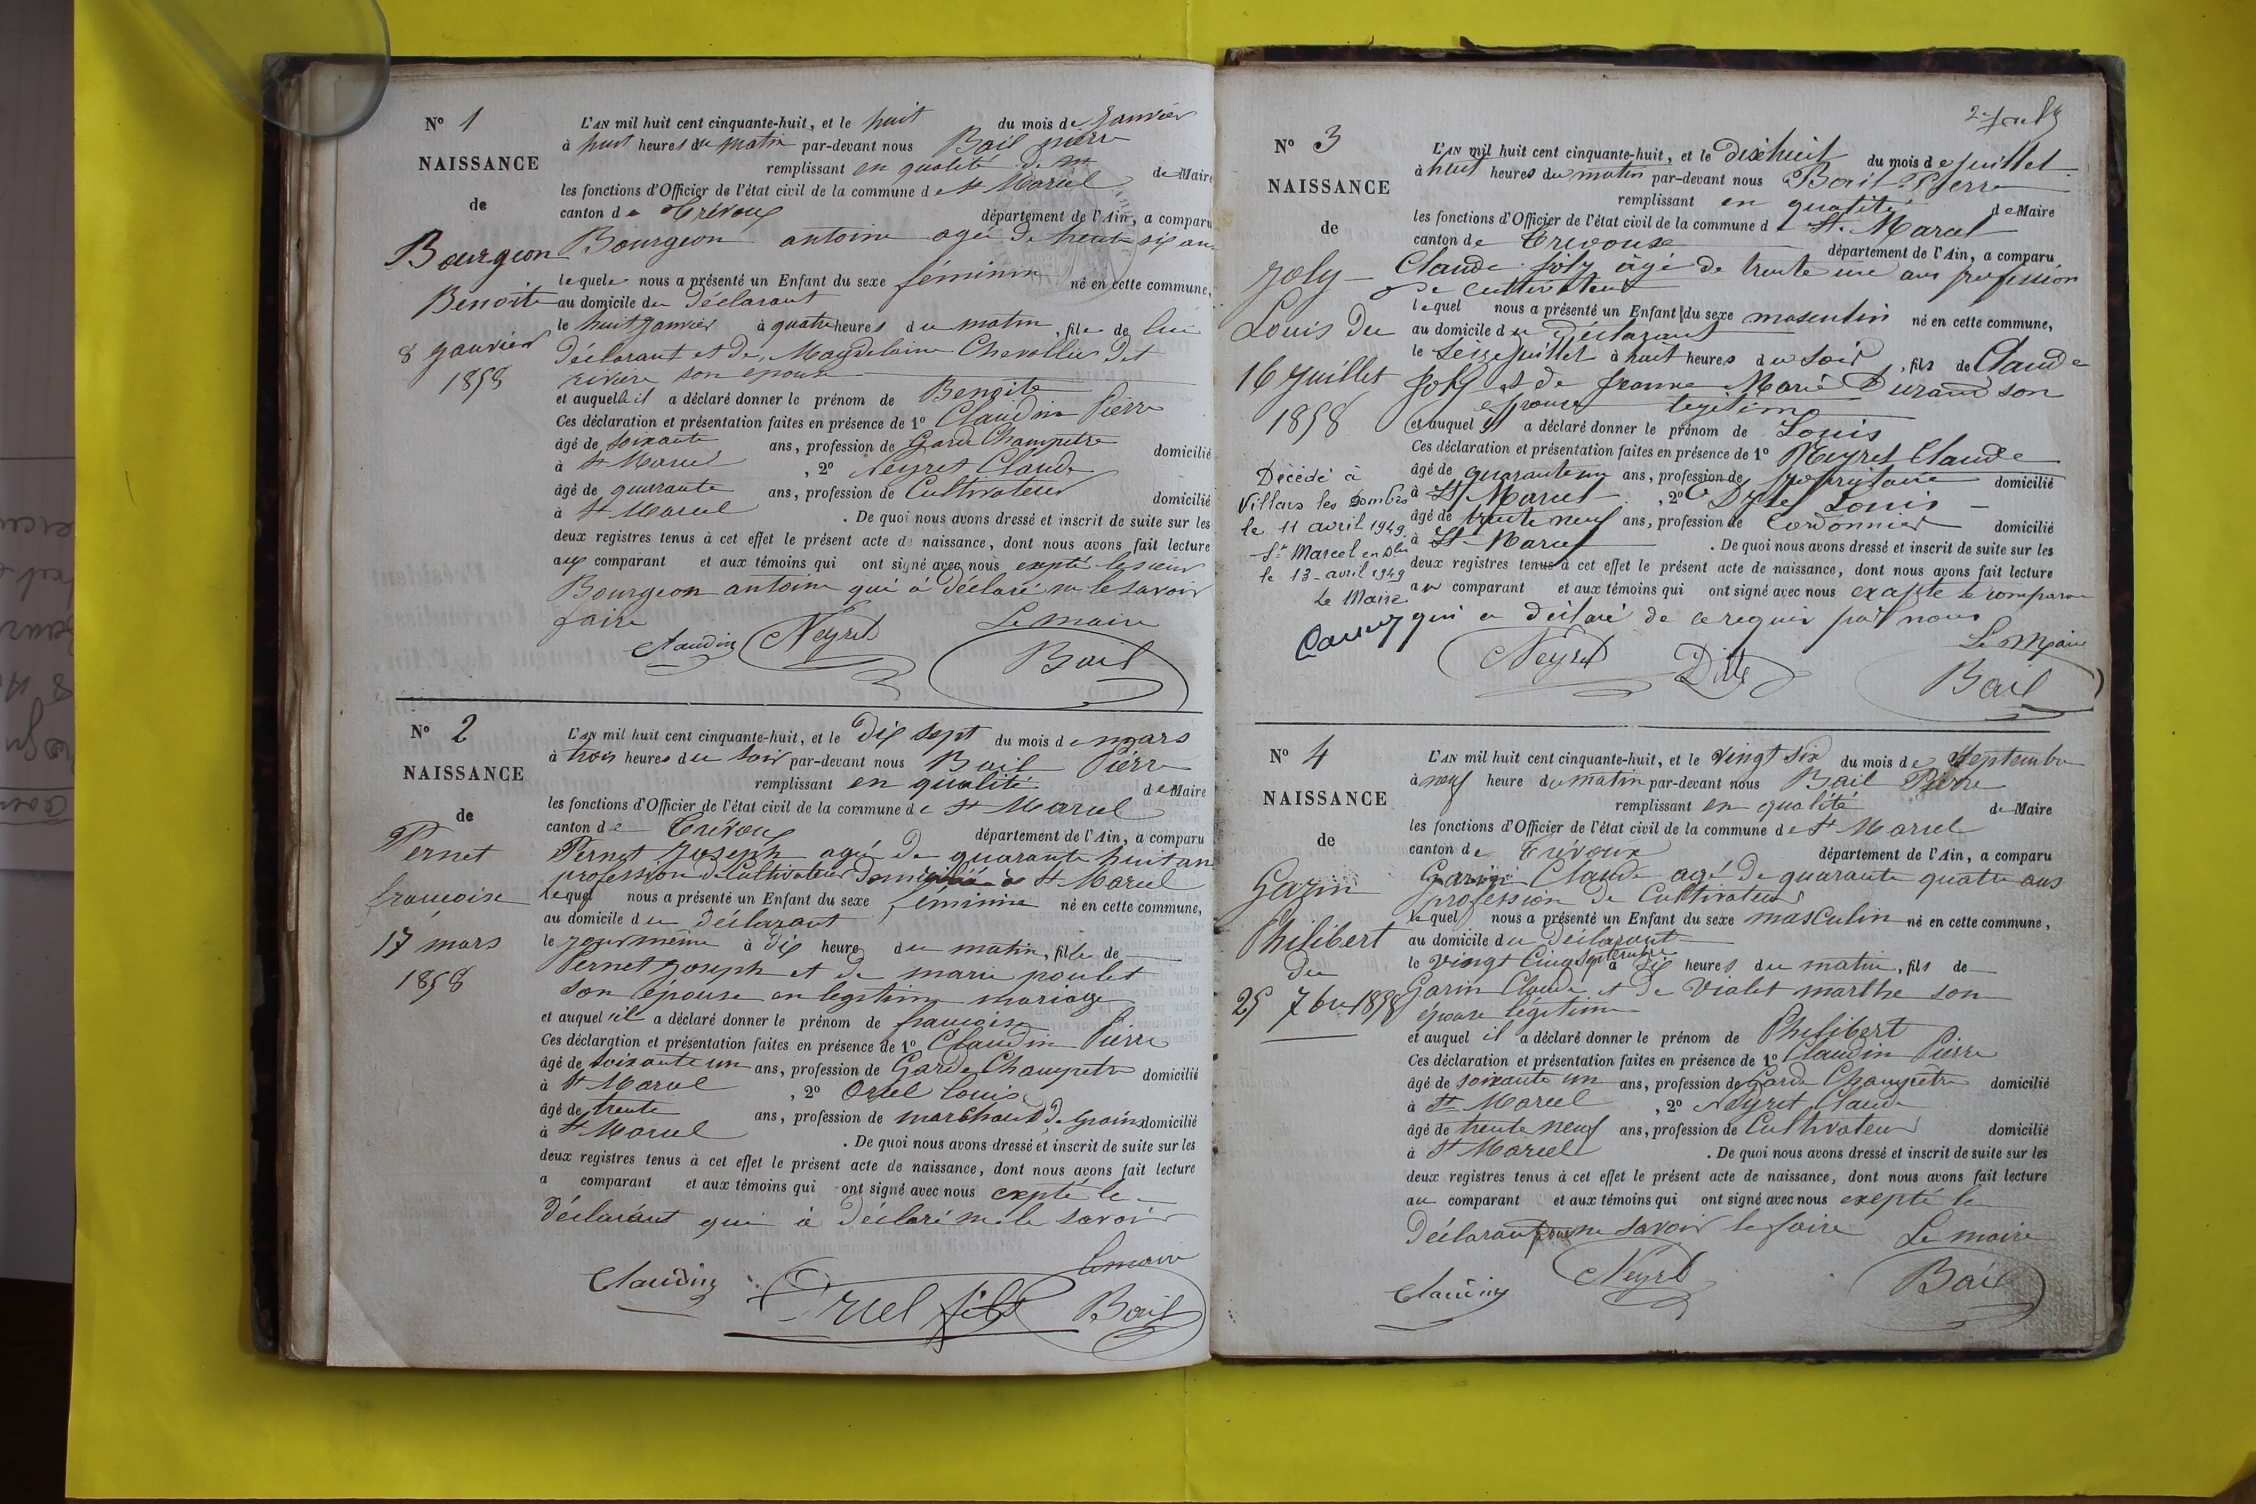 N° 1
NAISSANCE
de
Bourgeon
Benoite
8 janvier
1858
L'AN mil huit cent cinquante-huit, et le huit du mois de janvier
à huit heures du matin par-devant nous Bail pierre
remplissant en qualité de Maire
les fonctions d'Officier de l'état civil de la commune de St Marcel
canton de Trévoux département de l'Ain, a comparu
Bourgeon antoine agé de trente six ans
lequel nous a présenté un Enfant du sexe féminin né en cette commune,
au domicile du déclarant
le huit janvier à quatre heures du matin, fille de lui
déclarant et de Magdelaine Chevallier dit
rivière son epouse
et auquel il a déclaré donner le prénom de Benoite
Ces déclaration et présentation faites en présence de 1° Claudin Pierre
âgé de soixante ans, profession de Garde Champetre domicilié
à St Marcel, 2° Neyret Claude
âgé de quarante ans, profession de Cultivateur domicilié
à St Marcel. De quoi nous avons dressé et inscrit de suite sur les
deux registres tenus à cet effet le présent acte de naissance, dont nous avons fait lecture
aux comparant et aux témoins qui ont signé avec nous expté le sieur
Bourgeon antoine qui à déclaré ne le savoir
faire
Le maire
Claudin Neyret Bail
N° 2
NAISSANCE
de
Pernet
françoise
17 mars
1858
L'AN mil huit cent cinquante-huit, et le dix sept du mois de mars
à trois heures du soir par-devant nous Bail Pierre
remplissant en qualité de Maire
les fonctions d'Officier de l'état civil de la commune de St Marcel
canton de Trévoux département de l'Ain, a comparu
Pernet Joseph agé de quarante huit an
profession de Cultivateur domicilié à St Marcel
lequel nous a présenté un Enfant du sexe féminin né en cette commune,
au domicile du déclarant
le jour même à dix heures du matin, fille de
Pernet joseph et de marie poulet
son épouse en légitime mariage
et auquel il a déclaré donner le prénom de françoise
Ces déclaration et présentation faites en présence de 1° Claudin Pierre
âgé de soixante un ans, profession de Garde Champetre domicilié
à St Marcel, 2° Oriel Louis
âgé de trente ans, profession de marchand de grains domicilié
à St Marcel. De quoi nous avons dressé et inscrit de suite sur les
deux registres tenus à cet effet le présent acte de naissance, dont nous avons fait lecture
a comparant et aux témoins qui ont signé avec nous expté le
déclarant qui à déclaré ne le savoir
le maire
Claudin Oriel fils Bail
N° 3
NAISSANCE
de
Joly
Louis du
16 Juillet
1858
Décédé à
Villars les Dombes
le 11 avril 1949
St Marcel en Dbes
le 13 avril 1949
Le Maire
L'AN mil huit cent cinquante-huit, et le dix huit du mois de juillet
à huit heures du matin par-devant nous Bail Pierre
remplissant en qualité de Maire
les fonctions d'Officier de l'état civil de la commune de St. Marcel
canton de Trévoux département de l'Ain, a comparu
Claude Joly âgé de trente un ans profession
de cultivateur
lequel nous a présenté un Enfant du sexe masculin né en cette commune,
au domicile du déclarant
le seize juillet à huit heures du soir, fils de Claude
Joly et de Jeanne Marie Durand son
epouse legitime
et auquel il a déclaré donner le prénom de Louis
Ces déclaration et présentation faites en présence de 1° Neyret Claude
âgé de quarante ans, profession de propriétaire domicilié
à St Marcel, 2° Ditte Louis
âgé de trente neuf ans, profession de Cordonnier domicilié
à St Marcel. De quoi nous avons dressé et inscrit de suite sur les
deux registres tenus à cet effet le présent acte de naissance, dont nous avons fait lecture
au comparant et aux témoins qui ont signé avec nous exapté le comparan
qui a déclaré de ce requis par nous
Le Maire
Neyret Ditte Bail
N° 4
NAISSANCE
de
Garin
Philibert
du
25 7bre 1858
L'AN mil huit cent cinquante-huit, et le vingt six du mois de Septembre
à neuf heure du matin par-devant nous Bail Pierre
remplissant en qualité de Maire
les fonctions d'Officier de l'état civil de la commune de St Marcel
canton de Trévoux département de l'Ain, a comparu
Garin Claude agé de quarante quatre ans
profession de Cultivateur
lequel nous a présenté un Enfant du sexe masculin né en cette commune,
au domicile du déclarant
le vingt cinq septembre à dix heures du matin, fils de
Garin Claude et de Violet marthe son
épouse légitime
et auquel il a déclaré donner le prénom de Philibert
Ces déclaration et présentation faites en présence de 1° Claudin Pierre
âgé de soixante un ans, profession de Garde Champetre domicilié
à St Marcel, 2° Neyret Claude
âgé de trente neuf ans, profession de Cultivateur domicilié
à St Marcel. De quoi nous avons dressé et inscrit de suite sur les
deux registres tenus à cet effet le présent acte de naissance, dont nous avons fait lecture
au comparant et aux témoins qui ont signé avec nous exepté le
déclarant pour ne savoir le faire Le maire
Claudin Neyret Bail